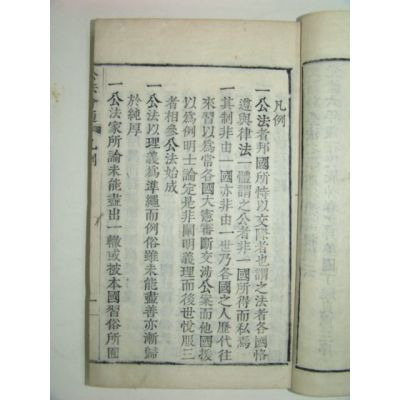 凡例
一公法者邦國所恃以交際者也謂之法者各國恪
遵與律法一體謂之公者非一國所得而私焉
一其制非由一國亦非由一世乃各國之人歷代往
來習以為常各國大憲審斷交涉公案而他國援
為例明士論定是非闡明義理而後世悅服三
者相參公法始成
一公法以理義為準繩而例俗雖未能盡善亦漸歸
於純厚
一公法家所論未能盡出一轍或被本國習俗所囿
凡例
一